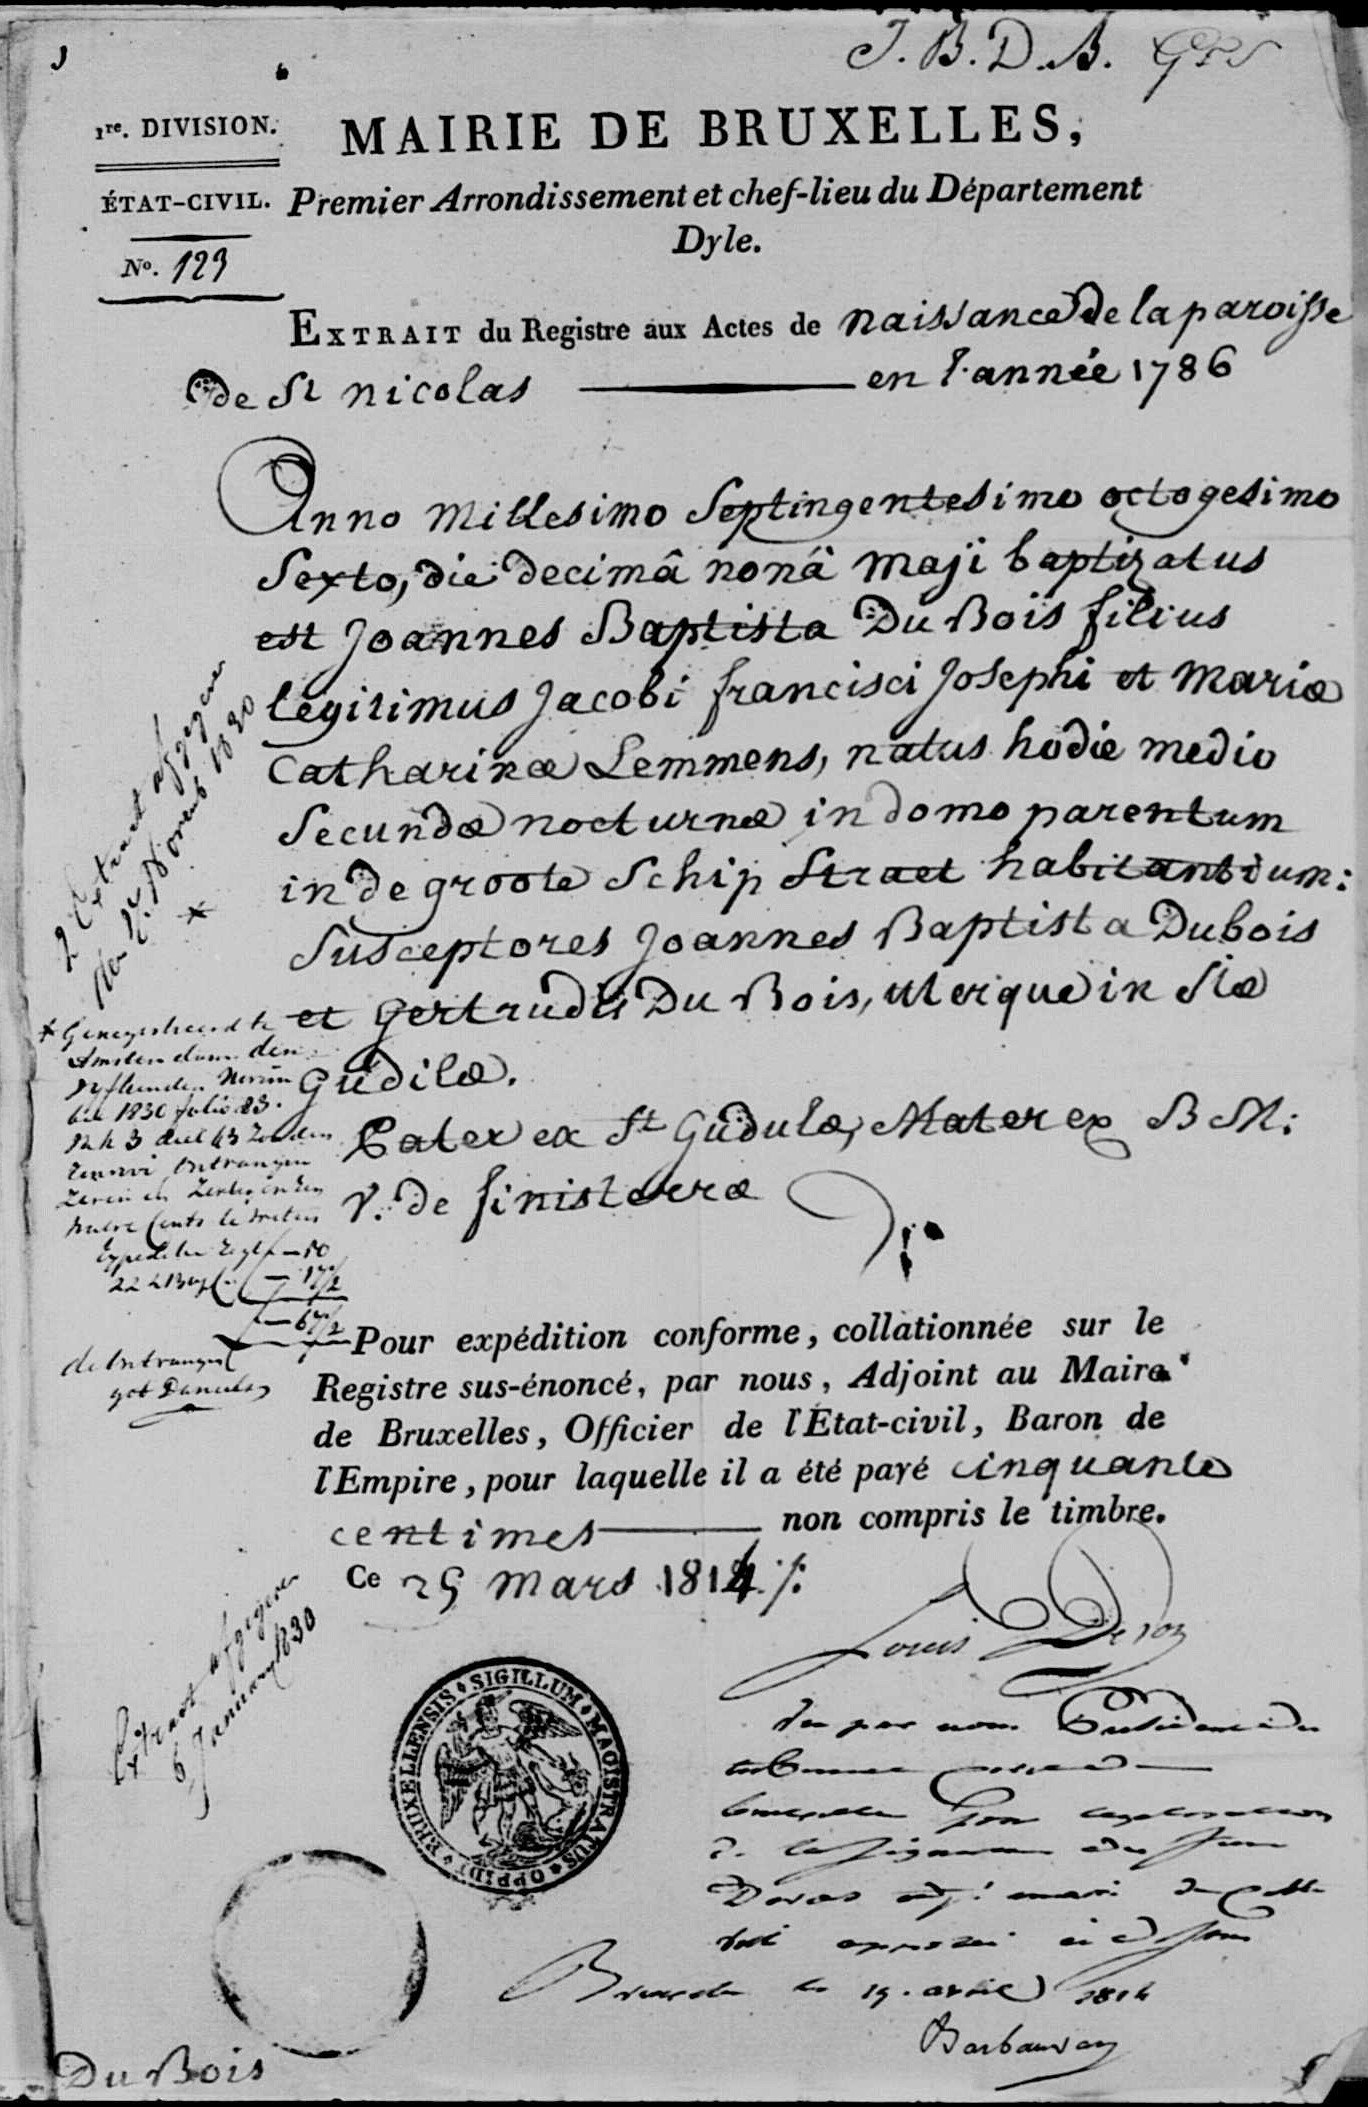 J. B. D. B.
1re. DIVISION.
ÉTAT-CIVIL.
No. 123
MAIRIE DE BRUXELLES,
Premier Arrondissement et chef-lieu du Département
Dyle.
EXTRAIT du Registre aux Actes de naissance de la paroisse
de St nicolas en l'année 1786
Anno Millesimo Septingentesimo octogesimo
Sexto, die decimâ nonâ Maji baptizatus
est Joannes Baptista Du Bois filius
legitimus Jacobi francisci Josephi et Mariæ
Catharinæ Lemmens, natus hodie medio
Secundæ nocturnæ in domo parentum
in de groote Schip Straet habitantium:
Susceptores Joannes Baptista Dubois
et Gertrudis Du Bois, uterque in Stæ
Gudilæ.
Pater ex St Gudulæ, Mater ex B M:
V. de finisterræ
2 Extract afgegeven
Novemb 1830
*
* Geregistreerd te
Amsterdam den
vyftienden Novem
ber 1830 folio 83.
Ontvangen
Cents
50
17½
67½
de Ontvanger
Pour expédition conforme, collationnée sur le
Registre sus-énoncé, par nous, Adjoint au Maire
de Bruxelles, Officier de l'Etat-civil, Baron de
l'Empire, pour laquelle il a été payé cinquante
centimes non compris le timbre.
Ce 25 Mars 1814
Louis Devos
Extract afgegeven
6 January 1830
SIGILLUM MAGISTRATUS OPPIDI BRUXELLENSIS
Vu par nous Président du
tribunal
Bruxelles pour legalisation
de la signature du Sieur
Devos adj. maire de cette
ville apposée ci dessus
Bruxelles le 19. avril 1814
Barbanson
Du Bois